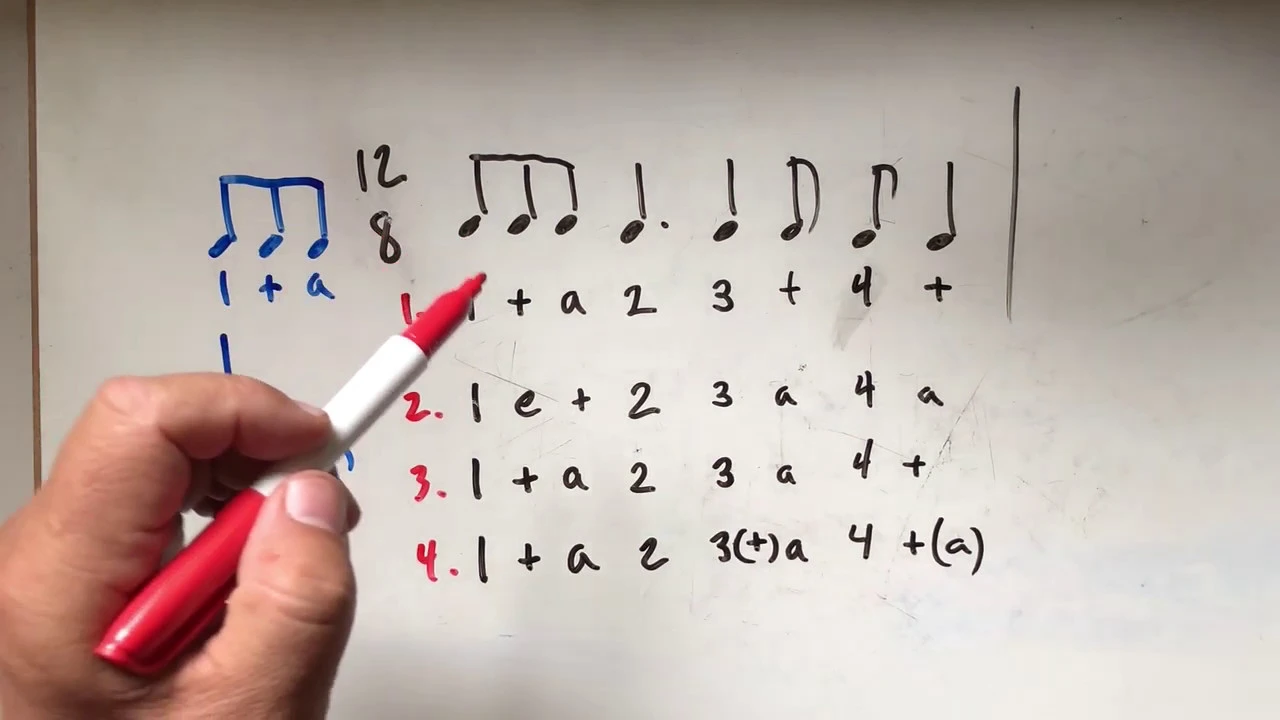 12
8
1 + a
1
1. 1 + a 2 3 + 4 +
2. 1 e + 2 3 a 4 a
3. 1 + a 2 3 a 4 +
4. 1 + a 2 3(+)a 4 +(a)